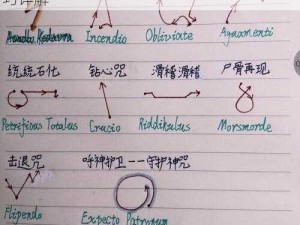 Avada Kedavra Incendio Obliviate Aguamenti
统统石化 钻心咒 滑稽滑稽 尸骨再现
Petrificus Totalus Crucio Riddikulus Morsmorde
击退咒 呼神护卫——守护神咒
Flipendo Expecto Patronum